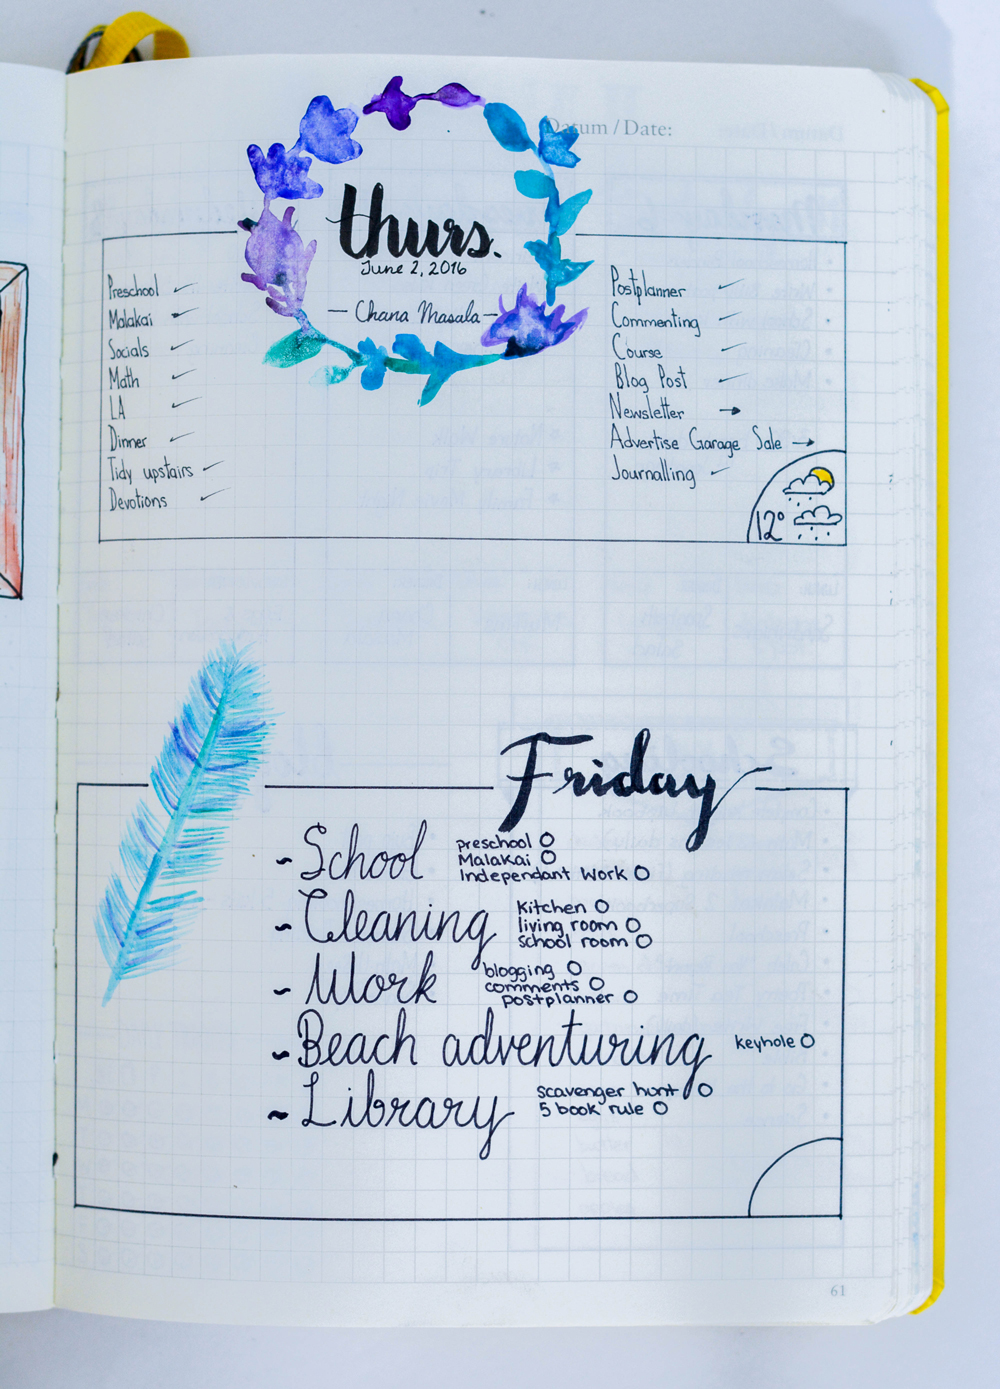 Datum / Date:
thurs.
June 2, 2016
— Chana Masala —
Preschool ✓
Malakai ✓
Socials ✓
Math ✓
LA ✓
Dinner ✓
Tidy upstairs ✓
Devotions ✓
Postplanner ✓
Commenting ✓
Course ✓
Blog Post ✓
Newsletter →
Advertise Garage Sale →
Journalling ✓
12°
Friday
~ School
preschool O
Malakai O
Independant Work O
~ Cleaning
Kitchen O
living room O
school room O
~ Work
blogging O
comments O
postplanner O
~ Beach adventuring
keyhole O
~ Library
scavenger hunt O
5 book rule O
61